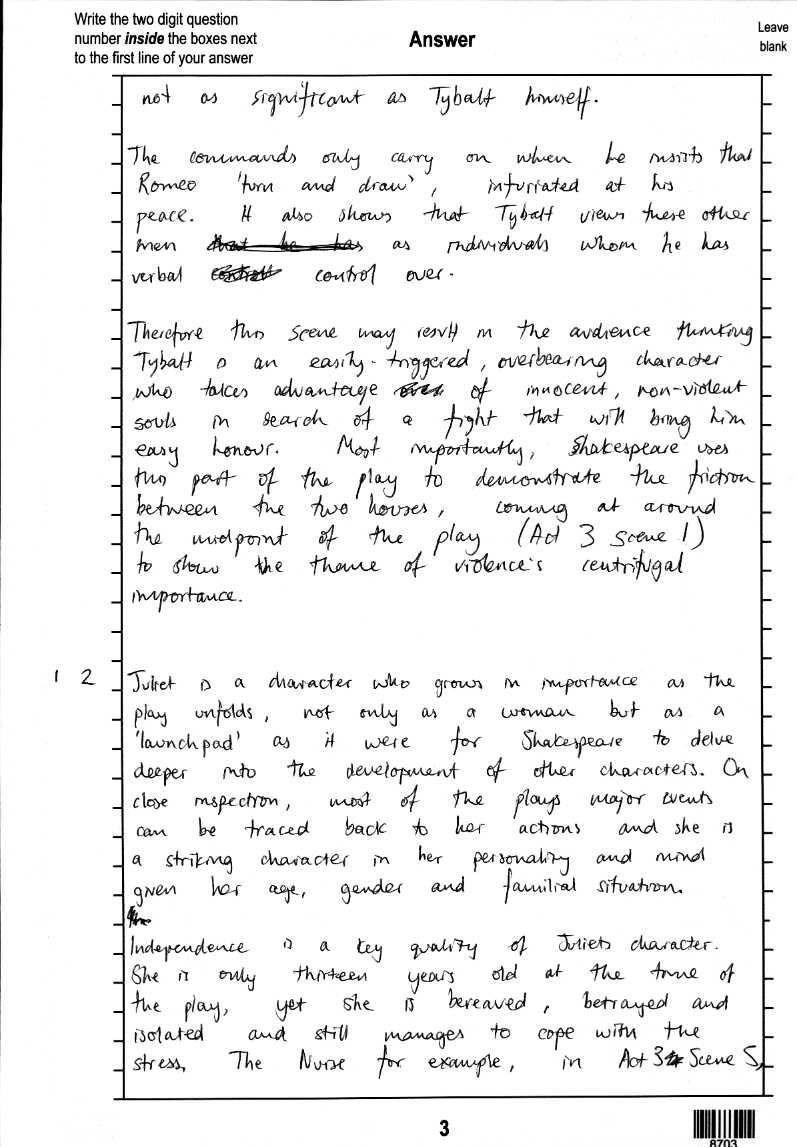 Write the two digit question
number inside the boxes next
to the first line of your answer
Answer
Leave
blank
not as significant as Tybalt himself.
The commands only carry on when he insists that
Romeo 'turn and draw', infuriated at his
peace. It also shows that Tybalt views these other
men that he has as individuals whom he has
verbal control over.
Therefore this scene may result in the audience thinking
Tybalt is an easily-triggered, overbearing character
who takes advantage of innocent, non-violent
souls in search of a fight that will bring him
easy honour. Most importantly, Shakespeare uses
this part of the play to demonstrate the friction
between the two houses, coming at around
the midpoint of the play (Act 3 Scene 1)
to show the theme of violence's centrifugal
importance.
1 2 Juliet is a character who grows in importance as the
play unfolds, not only as a woman but as a
'launchpad' as it were for Shakespeare to delve
deeper into the development of other characters. On
close inspection, most of the plays major events
can be traced back to her actions and she is
a striking character in her personality and mind
given her age, gender and familial situation.
Independence is a key quality of Juliets character.
She is only thirteen years old at the time of
the play, yet she is bereaved, betrayed and
isolated and still manages to cope with the
stress. The Nurse for example, in Act 3 Scene 5,
3
8703